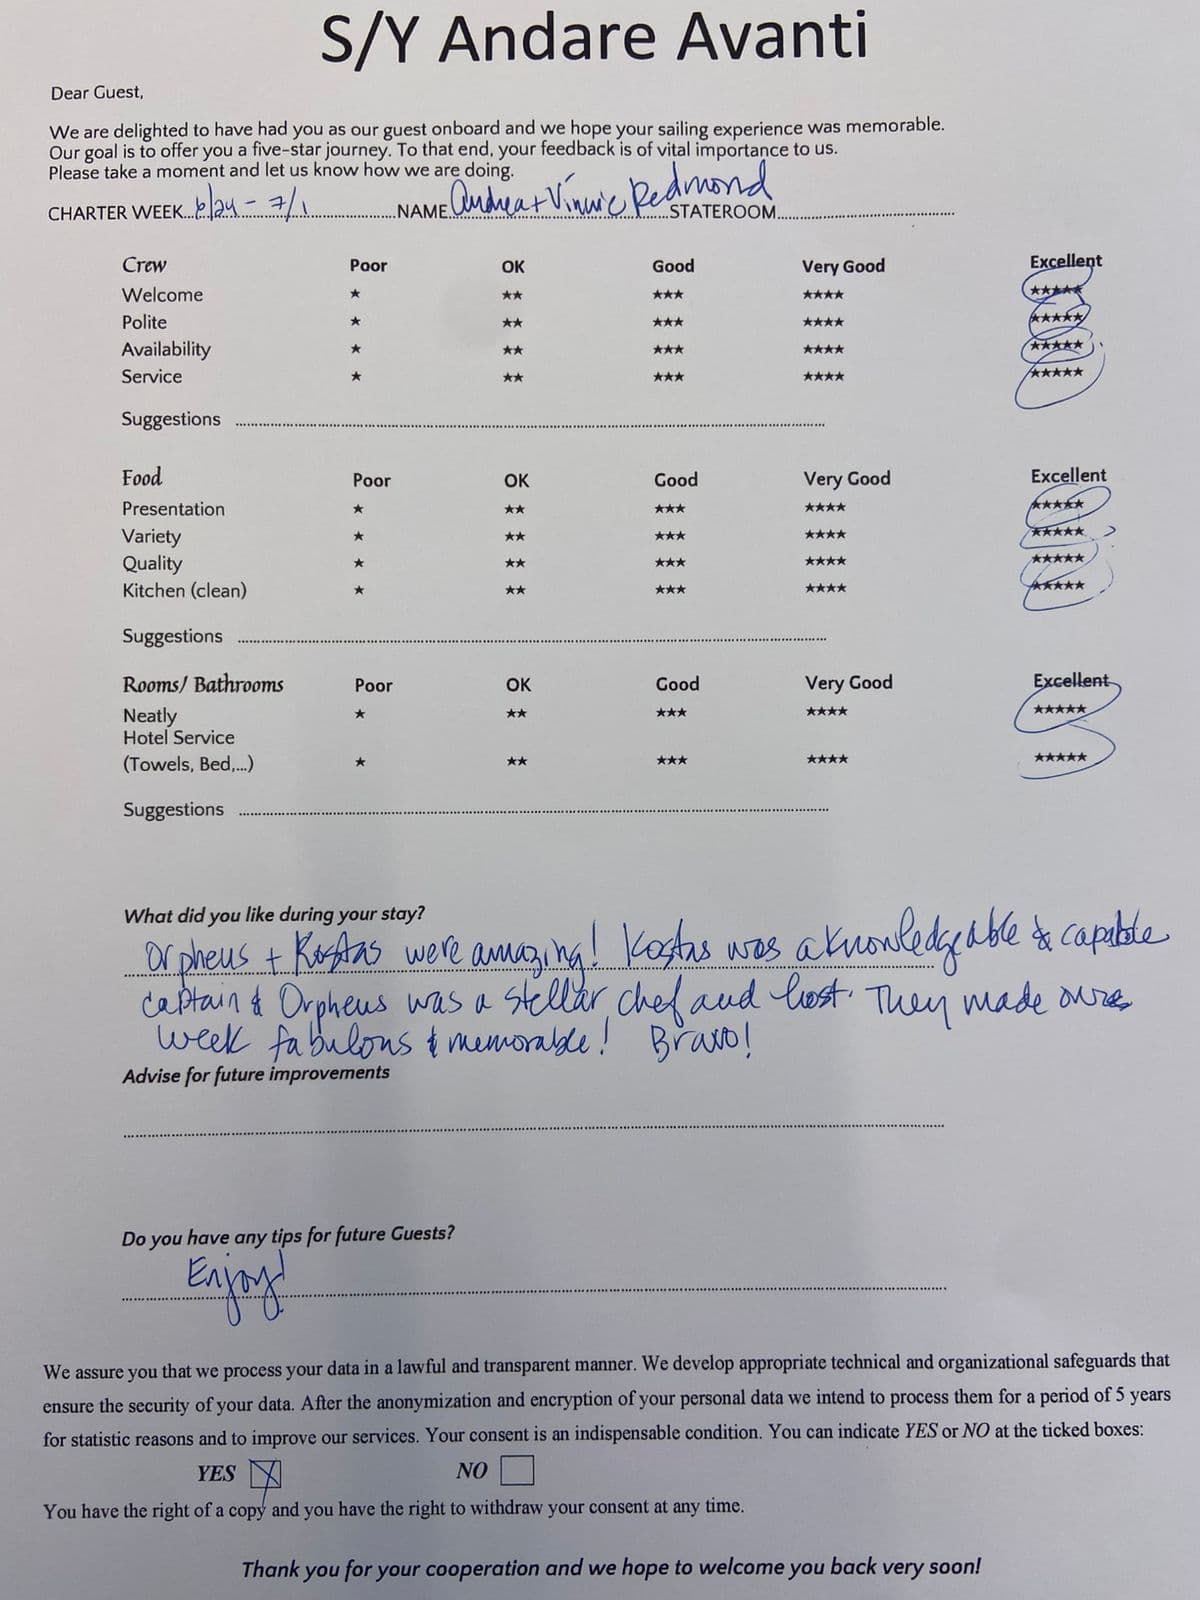 S/Y Andare Avanti
Dear Guest,
We are delighted to have had you as our guest onboard and we hope your sailing experience was memorable.
Our goal is to offer you a five-star journey. To that end, your feedback is of vital importance to us.
Please take a moment and let us know how we are doing.
CHARTER WEEK 6/24 - 7/1 NAME Andrea + Vinnie Redmond STATEROOM
Crew Poor OK Good Very Good Excellent
Welcome ★ ★★ ★★★ ★★★★ ★★★★★
Polite ★ ★★ ★★★ ★★★★ ★★★★★
Availability ★ ★★ ★★★ ★★★★ ★★★★★
Service ★ ★★ ★★★ ★★★★ ★★★★★
Suggestions
Food Poor OK Good Very Good Excellent
Presentation ★ ★★ ★★★ ★★★★ ★★★★★
Variety ★ ★★ ★★★ ★★★★ ★★★★★
Quality ★ ★★ ★★★ ★★★★ ★★★★★
Kitchen (clean) ★ ★★ ★★★ ★★★★ ★★★★★
Suggestions
Rooms/ Bathrooms Poor OK Good Very Good Excellent
Neatly ★ ★★ ★★★ ★★★★ ★★★★★
Hotel Service
(Towels, Bed,...) ★ ★★ ★★★ ★★★★ ★★★★★
Suggestions
What did you like during your stay?
Orpheus + Kostas were amazing! Kostas was a knowledgeable & capable
captain & Orpheus was a stellar chef and host. They made our
week fabulous & memorable! Bravo!
Advise for future improvements
Do you have any tips for future Guests?
Enjoy!
We assure you that we process your data in a lawful and transparent manner. We develop appropriate technical and organizational safeguards that
ensure the security of your data. After the anonymization and encryption of your personal data we intend to process them for a period of 5 years
for statistic reasons and to improve our services. Your consent is an indispensable condition. You can indicate YES or NO at the ticked boxes:
YES X NO
You have the right of a copy and you have the right to withdraw your consent at any time.
Thank you for your cooperation and we hope to welcome you back very soon!